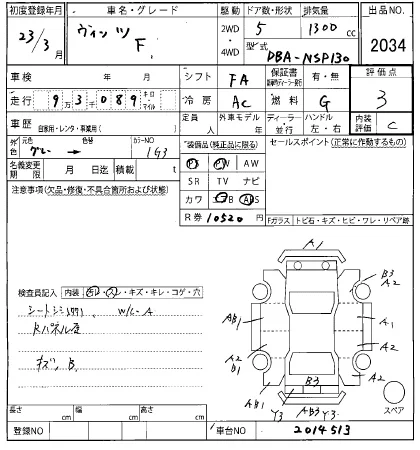 初度登録年月 車名・グレード 駆動 ドア数・形状 排気量 出品NO.
23/3月 ヴィッツ F 2WD ・ 4WD 5 1300 cc 2034
型式 DBA-NSP130
車検 年 月 シフト FA 保証書 有・無 評価点
走行 9万3千089 キロ・マイル 冷房 AC 燃料 G 3
車歴 自家用・レンタ・事業用( ) 定員 人 外車モデル 年 ディーラー・並行 ハンドル 左・右 内装評価 C
外色 元色 グレー → 色替 カラーNO 1G3 装備品(純正品に限る) セールスポイント(正常に作動するもの)
名義変更期限 月 日迄 積載 t PS PW AW
注意事項(欠品・修復・不具合箇所および状態) SR TV ナビ
カワ エアB ABS
R券 10520円 Fガラス トビ石・キズ・ヒビ・ワレ・リペア跡
検査員記入 内装 汚レ・スレ・キズ・キレ・コゲ・穴
W/C-A
キズ、B.
A1
B3
A2
AB1
A1
A2
B1
A2
A2
AB1
Y3
B3
AB3
Y3
スペア
長さ cm 幅 cm 高さ cm
登録NO 車台NO 2014513